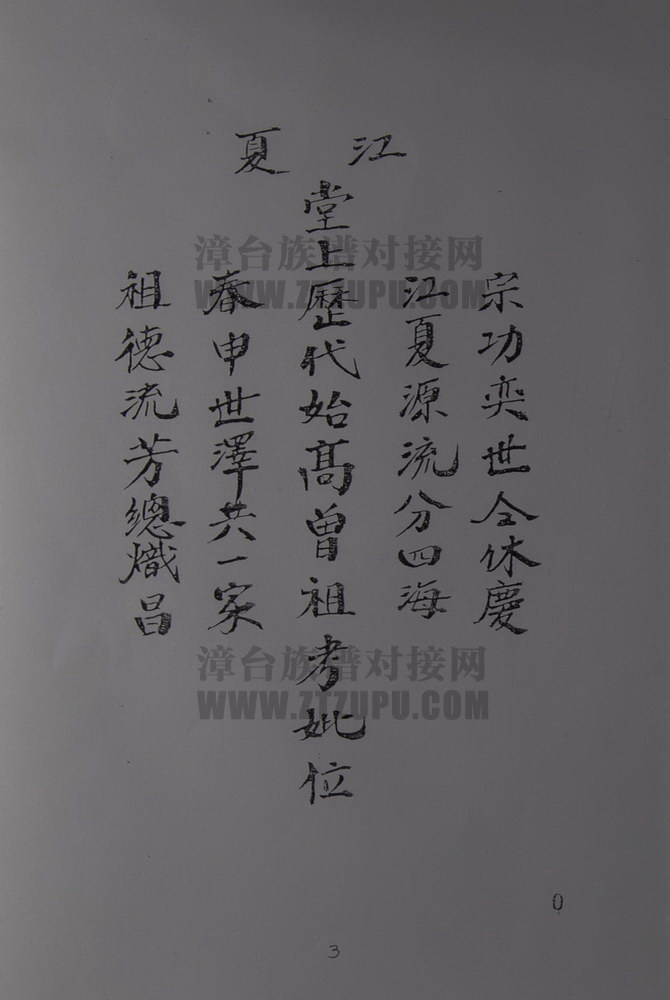 江夏
宗功奕世仝休慶
江夏源流分四海
堂上歷代始高曾祖考妣位
春申世澤共一家
祖德流芳總熾昌
漳台族谱对接网
WWW.ZTZUPU.COM
漳台族谱对接网
WWW.ZTZUPU.COM
0
3